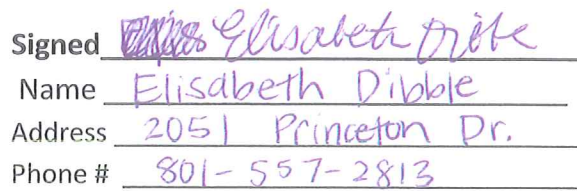 Signed Elisabeth Dibble
Name Elisabeth Dibble
Address 2051 Princeton Dr.
Phone # 801-557-2813